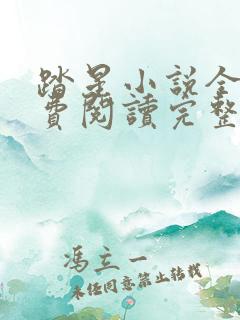 踏星小说全
費閱讀完整
馮立一
未经同意禁止转载